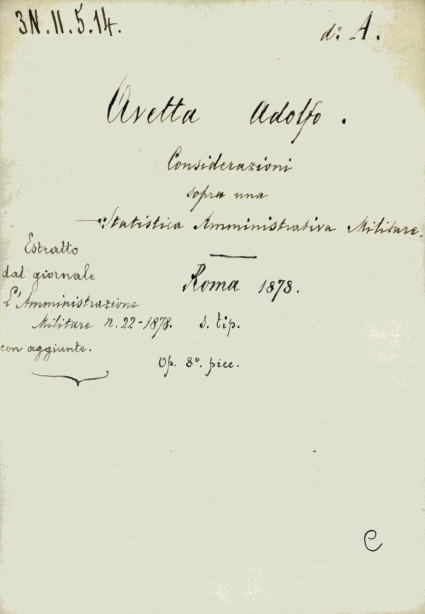 3N.II.5.14.
d: A.
Avetta Adolfo.
Considerazioni
sopra una
Statistica Amministrativa Militare.
Roma 1878.
s. tip.
Op. 8º. picc.
Estratto
dal giornale
L'Amministrazione
Militare n. 22-1878.
con aggiunte.
C